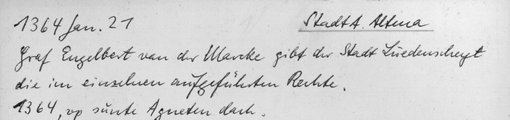 1364 Jan. 21 StadtA. Altena
Graf Engelbert van der Marcke gibt der Stadt Luedenscheyt
die im einzelnen aufgeführten Rechte.
1364, up sunte Agneten dach.